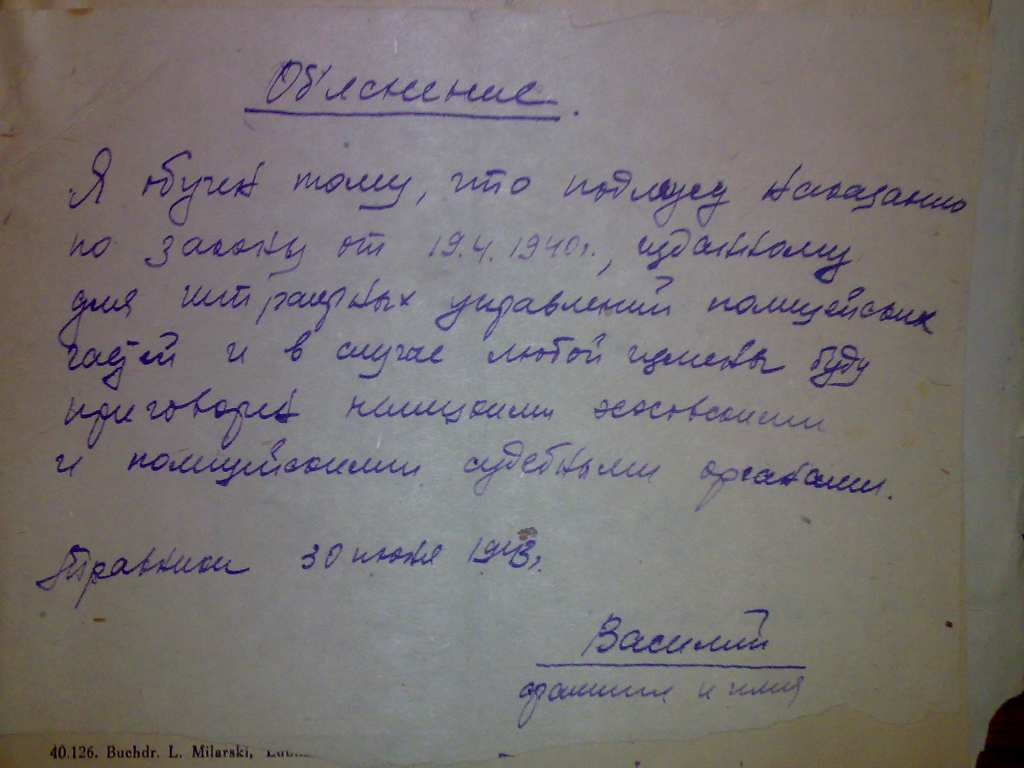 Об'яснение.
Я обучен тому, что подлежу наказанию
по закону от 19.4.1940г., изданному
для штрафных управлений полицейских
частей и в случае любой измены буду
приговорен немецкими эсэсовскими
и полицейскими судебными органами.
Травники 30 июня 1943г.
Василий
фамилия и имя
40.126. Buchdr. L. Milarski,